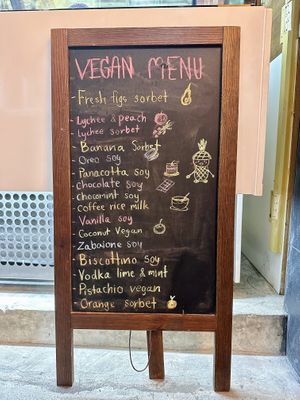 VEGAN MENU
- Fresh figs sorbet
- Lychee & peach
- Lychee sorbet
- Banana Sorbet
- Oreo soy
- Panacotta soy
- Chocolate soy
- chocomint soy
- Coffee rice milk
- Vanilla soy
- Coconut Vegan
- Zabaione soy
- Biscottino soy
- Vodka lime & mint
- Pistachio vegan
- Orange sorbet